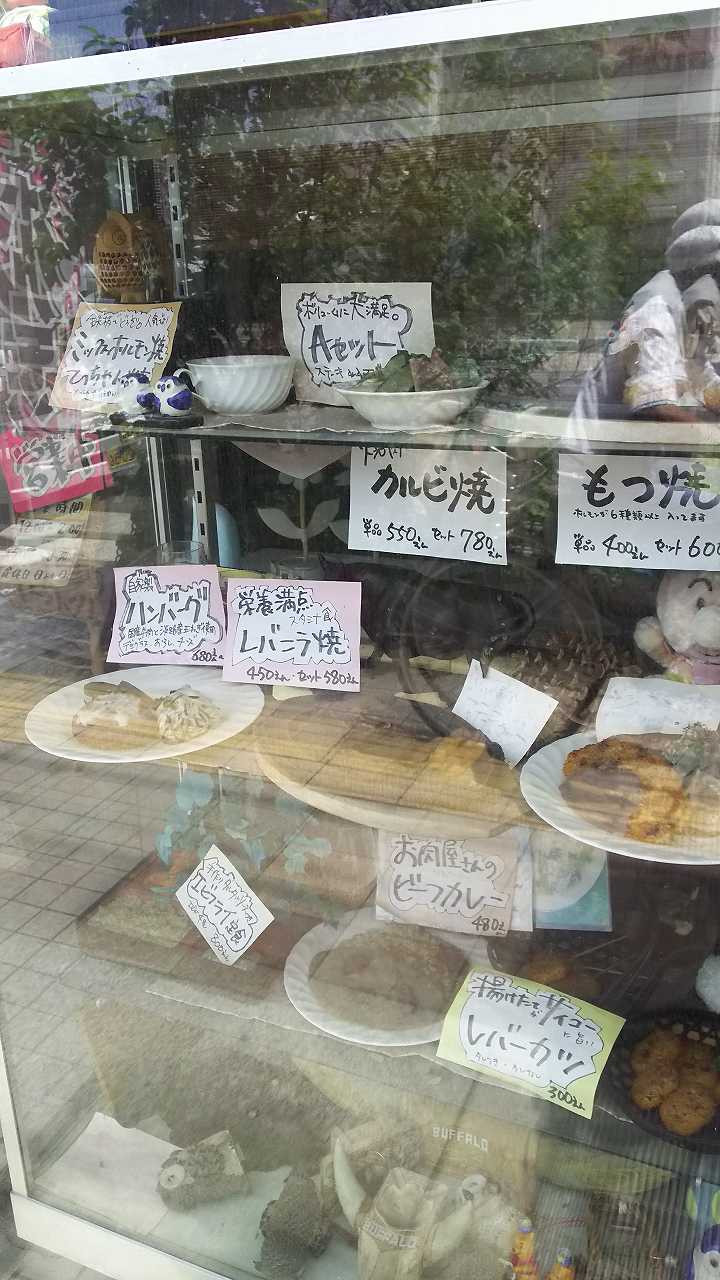 ミックスホルモン焼
てっちゃん焼
ボリュームに大満足。
Aセット
営業中
カルビ焼
単品 550えん セット 780えん
もつ焼
ホルモンが6種類以上入ってます
単品 400えん セット 600
自家製
ハンバーグ
680えん
栄養満点
スタミナ食
レバニラ焼
450えん・セット 580えん
お肉屋さんの
ビーフカレー
480えん
エビフライ定食
800えん
揚げたてがサイコーに旨い
レバーカツ
300えん
BUFFALO
BUFFALO